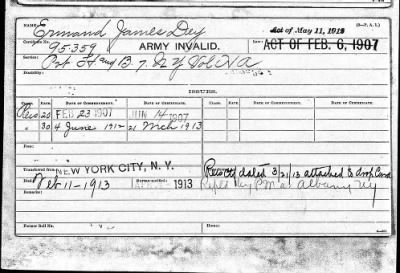 (3—P. A. I.)
NAME: Ermand James Dey
Act of May 11, 1912
Certificate No. 95359 ARMY INVALID. ACT OF FEB. 6, 1907
Service: Pvt H and B 7 N Y Vol H A
Disability:
ISSUES.
CLASS. RATE. DATE OF COMMENCEMENT. DATE OF CERTIFICATE. CLASS. RATE. DATE OF COMMENCEMENT. DATE OF CERTIFICATE.
20 FEB 23 1907 JUN 14 1907
30 4 June 1912 21 Mch 1913
Transferred from NEW YORK CITY, N. Y. dated 3/21/13 attached & drop Card
Died Feb 11-1913 1913 P.M. at Albany Ny
Former Roll No.